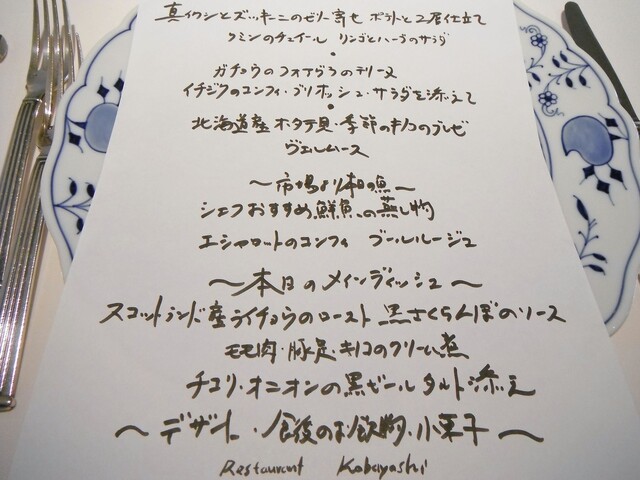 真イワシとズッキーニのゼリー寄せ ポテトと2層仕立て
クミンのチュイール リンゴとハーブのサラダ
•
ガチョウのフォアグラのテリーヌ
イチジクのコンフィ・ブリオッシュ・サラダを添えて
•
北海道産ホタテ貝・季節のキノコのブレゼ
ヴェルムース
〜市場より本日の魚〜
シェフおすすめ鮮魚の蒸し物
エシャロットのコンフィ ブールルージュ
〜本日のメインディッシュ〜
スコットランド産ライチョウのロースト 黒さくらんぼのソース
モモ肉・豚足・キノコのクリーム煮
チコリ・オニオンの黒ビール タルト添え
〜デザート・食後のお飲物・小菓子〜
Restaurant Kobayashi